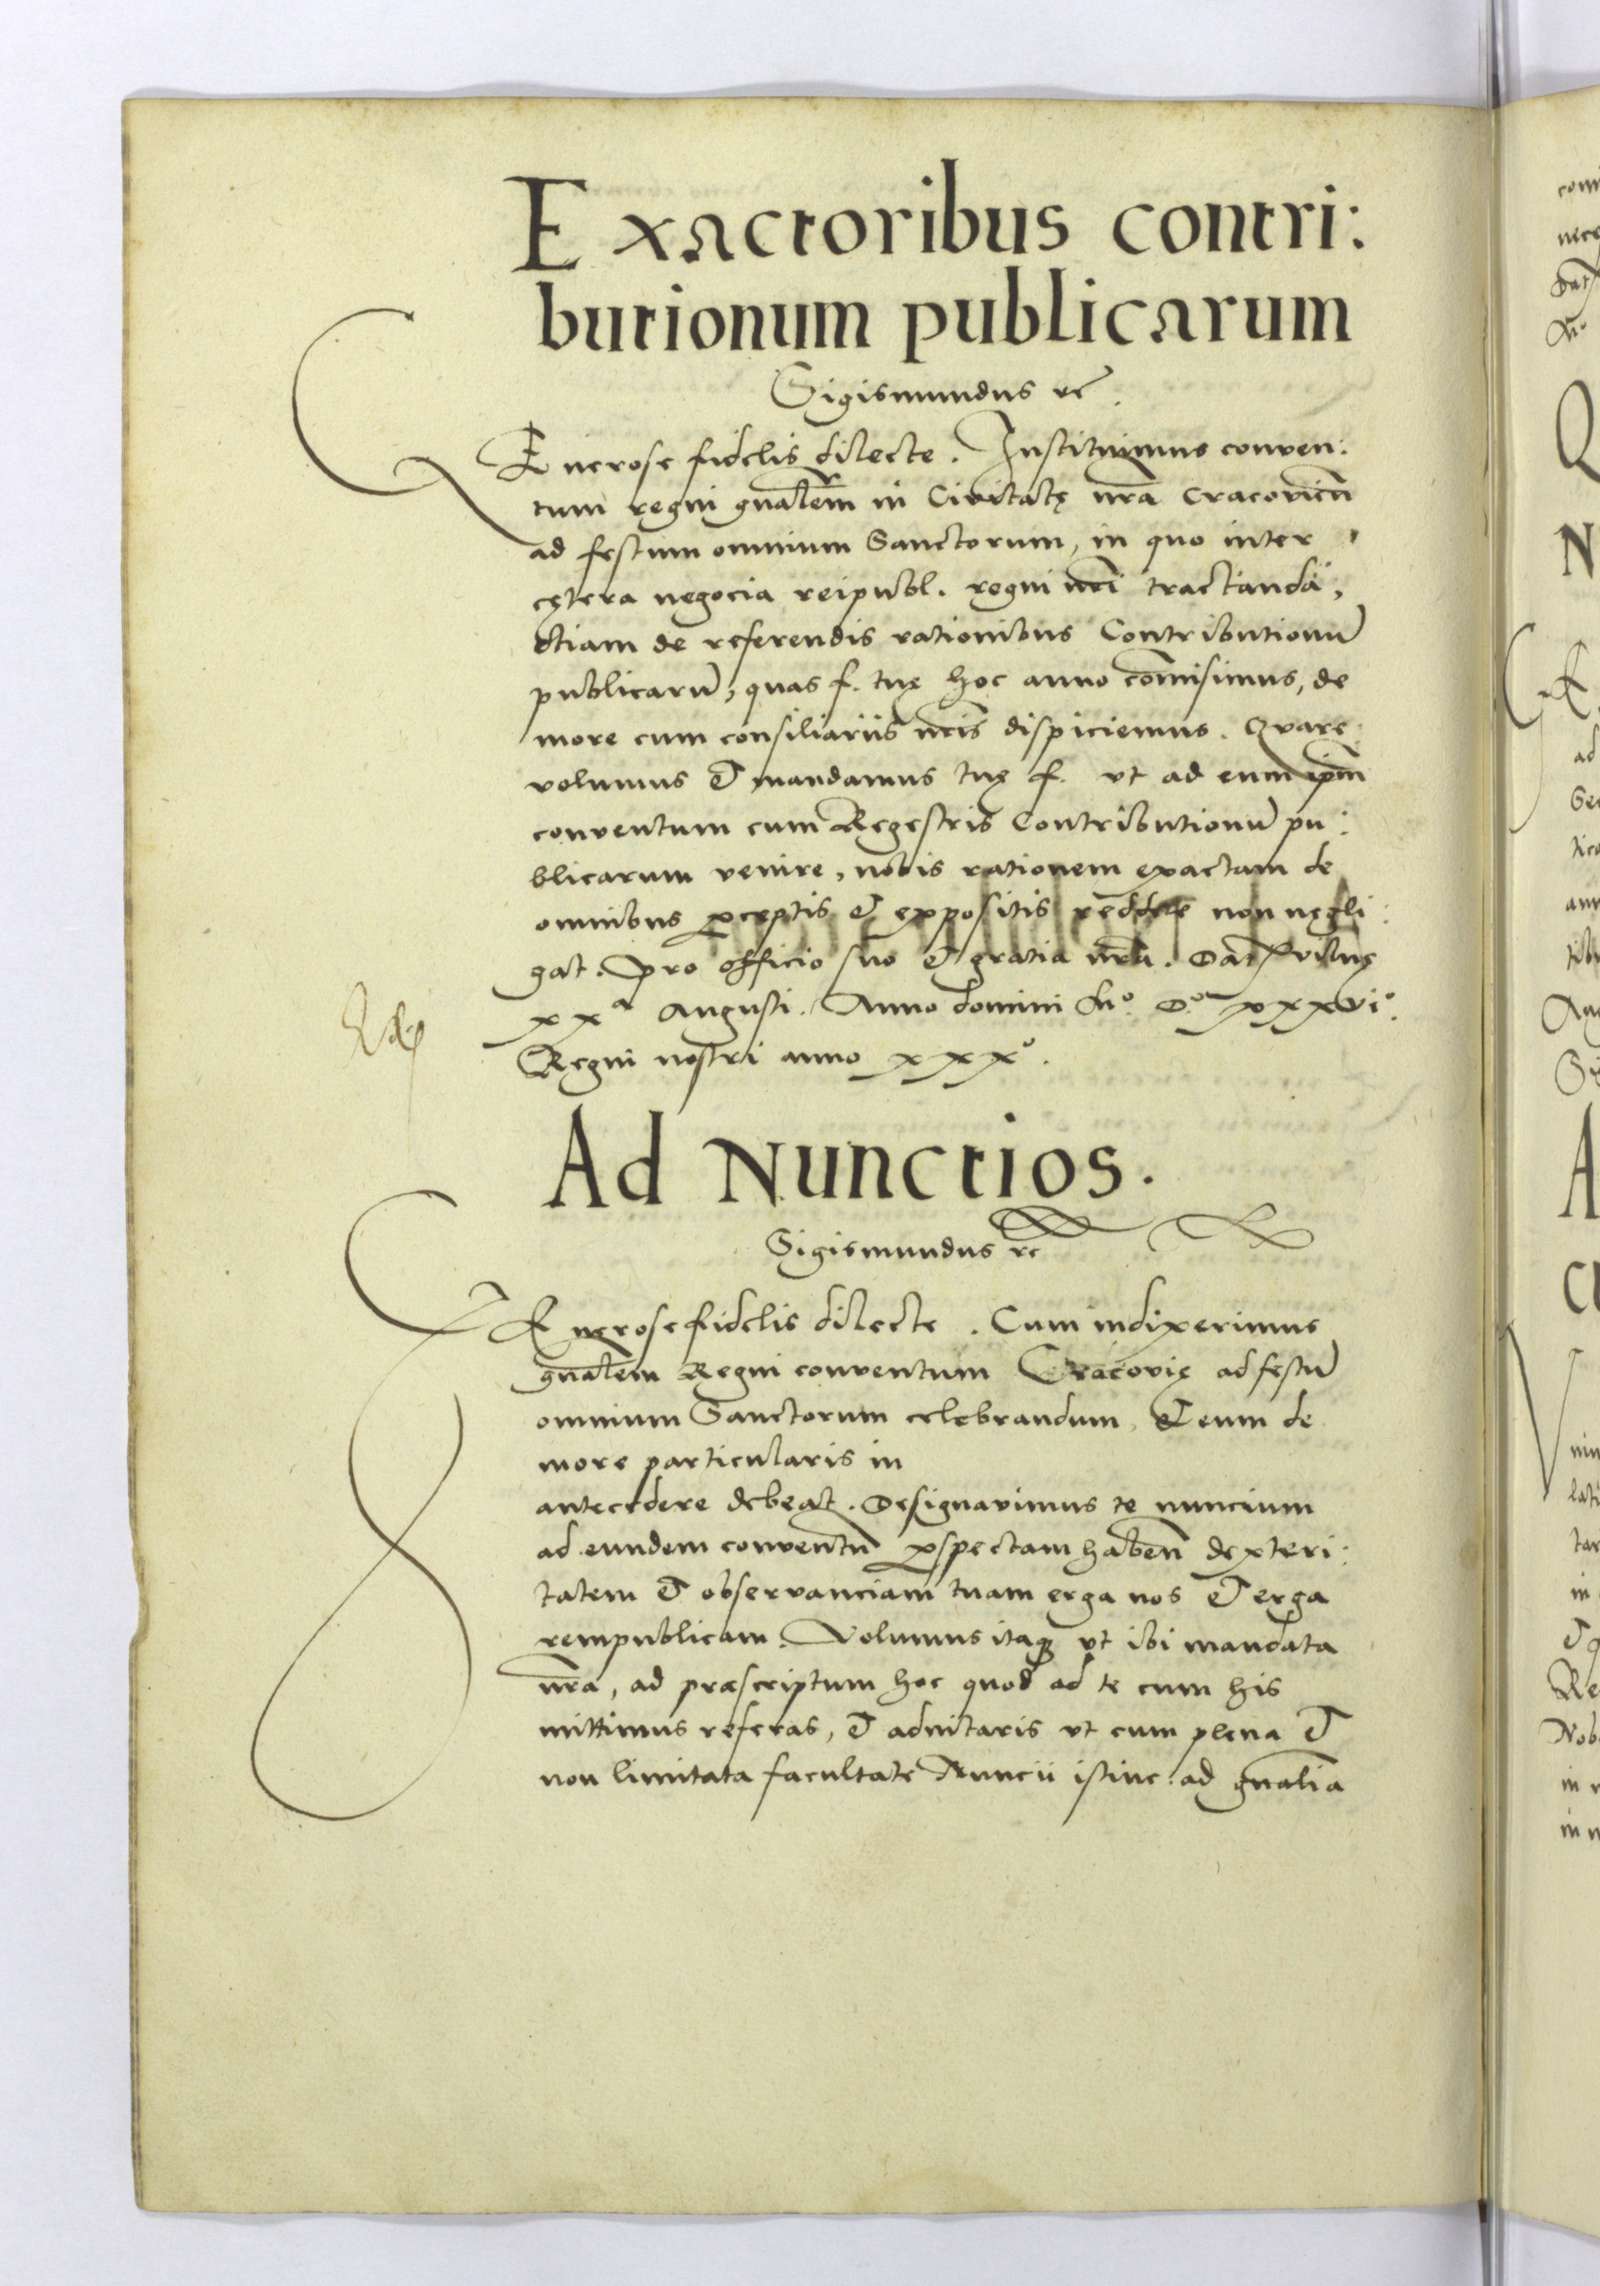 Exactoribus contri:
butionum publicarum
Sigismundus rc̃.
Generose fidelis dilecte. Instituimus conven:
tum regni gnãlem in Civitatę nrã Cracovień
ad festum omnium Sanctorum, in quo inter
cętera negocia reipubl. regni nrĩ tractanda,
Etiam de referendis rationibus Contributionũ
publicarũ, quas f. tuę hoc anno com̃isimus, de
more cum consiliariis nrĩs dispiciemus. Quare
volumus et mandamus tuę f. ut ad eum ipm̃
conventum cum Regestris Contributionũ pu:
blicarum venire, nobis rationem exactam de
omnibus ꝑceptis et expositis reddere non negli:
gat. pro officio suo et gratia nrã. Dat̃ Vilnę
xxª Augusti. Anno domini Mº. Dº. xxxviº.
Regni nostri anno xxxº.
Ad Nunctios.
Sigismundus rc
Generose fidelis dilecte. Cum indixerimus
gnãlem Regni conventum Cracovię ad festũ
omnium Sanctorum celebrandum, Et eum de
more particularis in
antecedere debeat. Designavimus te nuncium
ad eundem conventũ ꝑspectam habeñ dexteri:
tatem et observanciam tuam erga nos et erga
rempublicam. Volumus itaqꝫ ut ibi mandata
nrã, ad præscriptum hoc quod ad te cum his
mittimus referas, et adnitaris ut cum plena et
non limitata facultate Nuncii istinc ad gnãlia